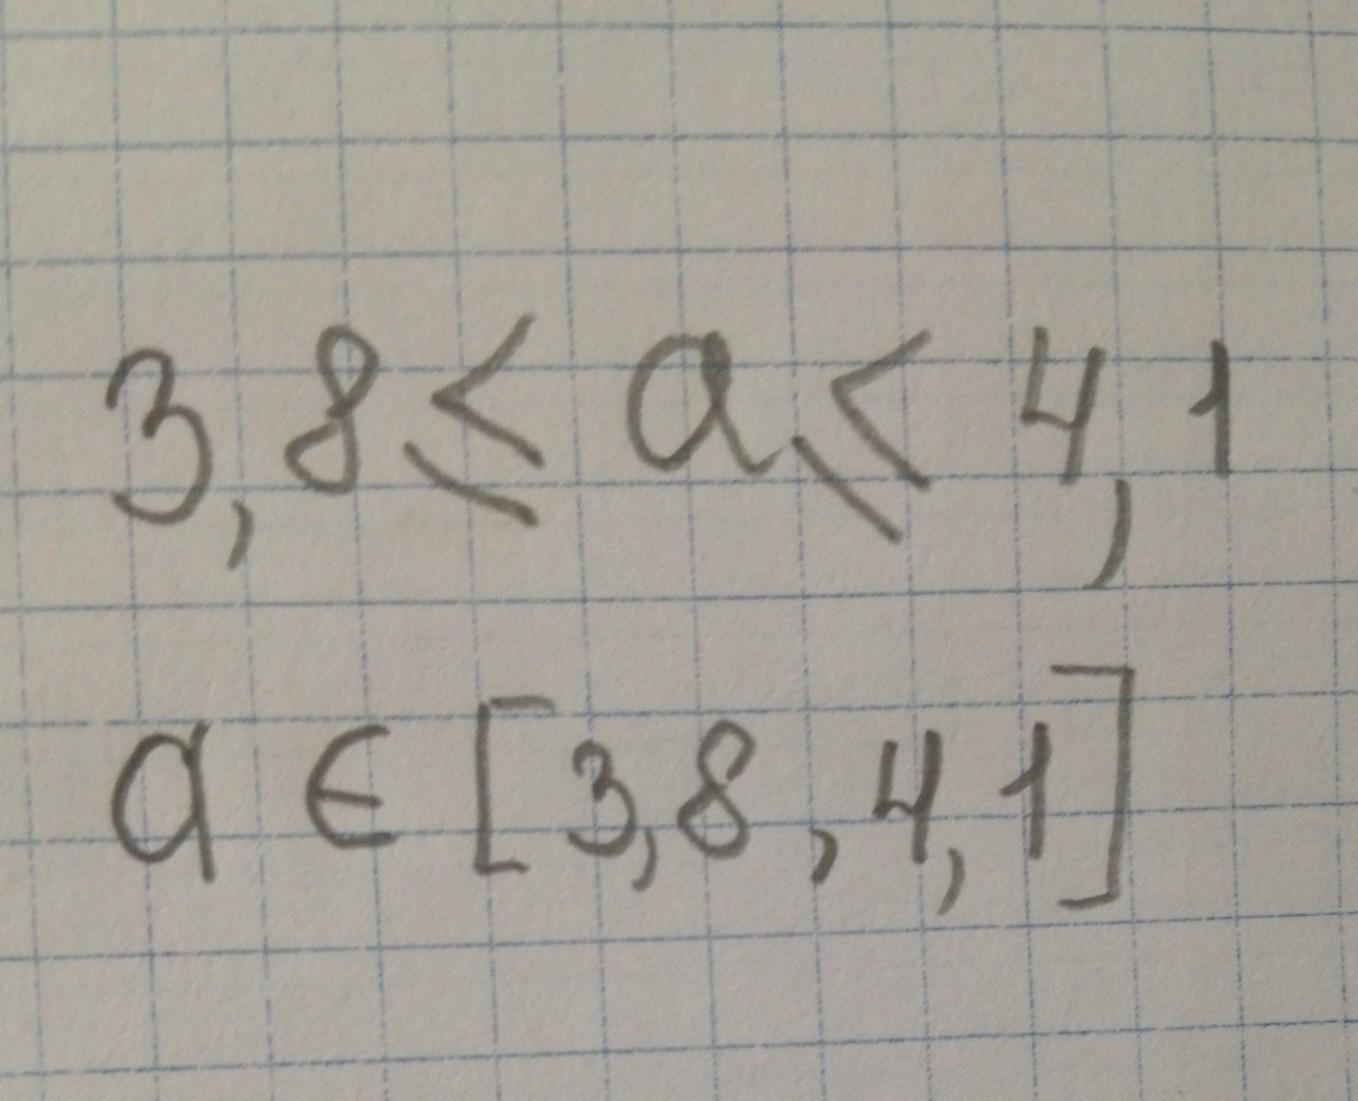 3,8 ⩽ a ⩽ 4,1
a ∈ [3,8 , 4,1]